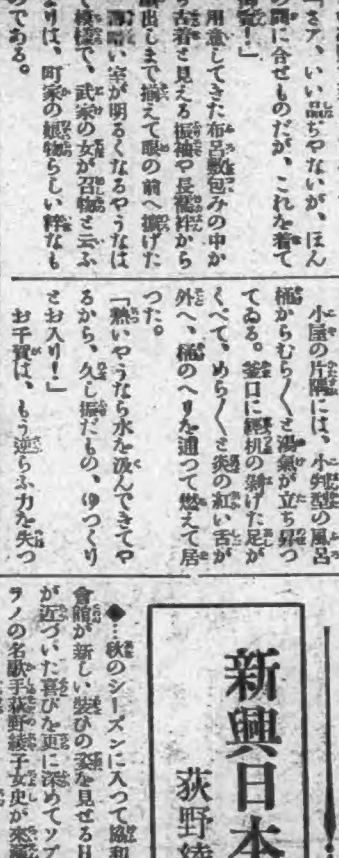 「さア、いい品ぢやないが、ほん
の間に合せものだが、これを着て
御覽！」
用意してきた布呂敷包みの中か
ら古着と見える振袖や長襦袢から
出しまで揃えて眼の前へ擴げた
暗い室が明るくなるやうなは
模樣で、武家の女が召物と云ふ
よりは、町家の娘物らしい粹なも
のである。
小屋の片隅には、小判型の風呂
桶からむら〳〵と湯氣が立ち昇つ
てゐる。釜口に經机の剝げた足が
くべて、めら〳〵と炎の紅い舌が
外へ、桶のへりを通つて燃えて居
つた。
「熱いやうなら水を汲んできてや
るから、久し振だもの、ゆつくり
とお入り！」
お千賀は、もう逆らふ力を失つ
新興日本
荻野綾
◆…秋のシーズンに入つて協和
會館が新しい裝ひの姿を見せる日
が近づいた喜びを更に深めてソプ
ラノの名歌手荻野綾子女史が來演